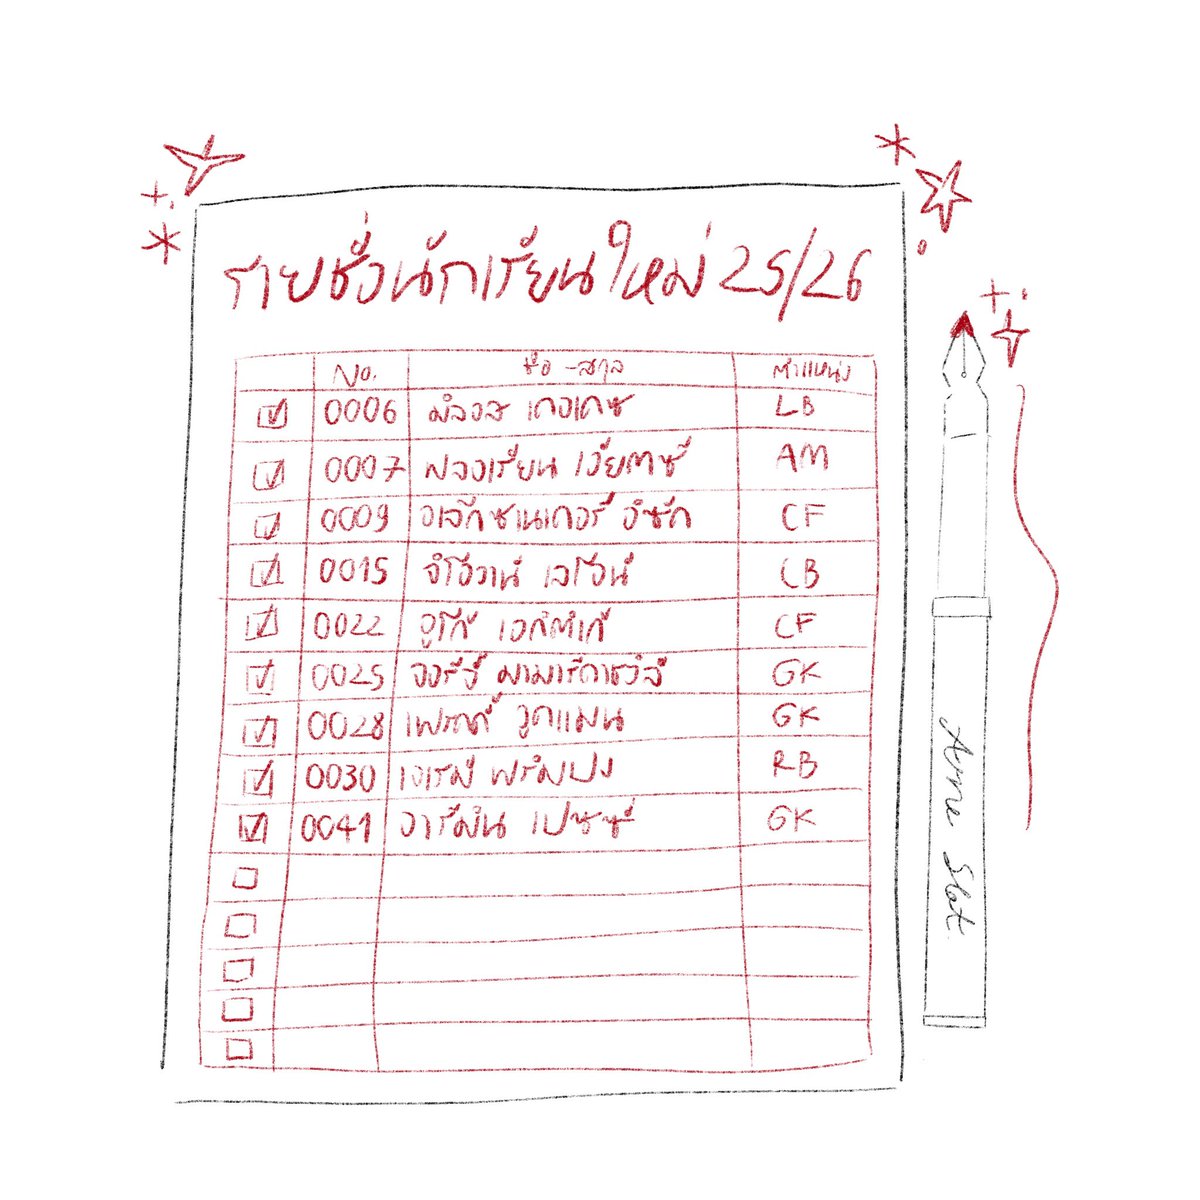 รายชื่อนักเรียนใหม่ 25/26
No. ชื่อ-สกุล ตำแหน่ง
0006 มิลอส เคอเคซ LB
0007 ฟลอเรียน เวียตซ์ AM
0009 อเล็กซานเดอร์ อิซัค CF
0015 จิโอวานี เลโอนี CB
0022 อูโก้ เอกิติเก้ CF
0025 จอร์จี้ มามาร์ดาชวิลี GK
0028 เฟรดดี้ วูดแมน GK
0030 เจเรมี ฟริมปง RB
0041 อาร์มิน เปซซี่ GK
Arne Slot